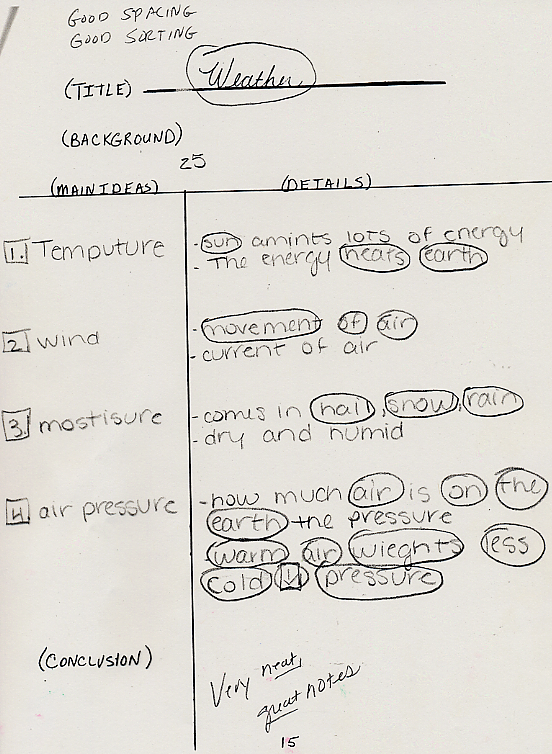 GOOD SPACING
GOOD SORTING
(TITLE) Weather
(BACKGROUND)
25
(MAIN IDEAS) (DETAILS)
1. Temputure - sun amints lots of energy
- The energy heats earth
2. wind - movement of air
- current of air
3. mostisure - comes in hail, snow, rain
- dry and humid
4. air pressure - how much air is on the
earth the pressure
warm air wieghts less
cold pressure
(CONCLUSION)
Very neat,
great notes
15